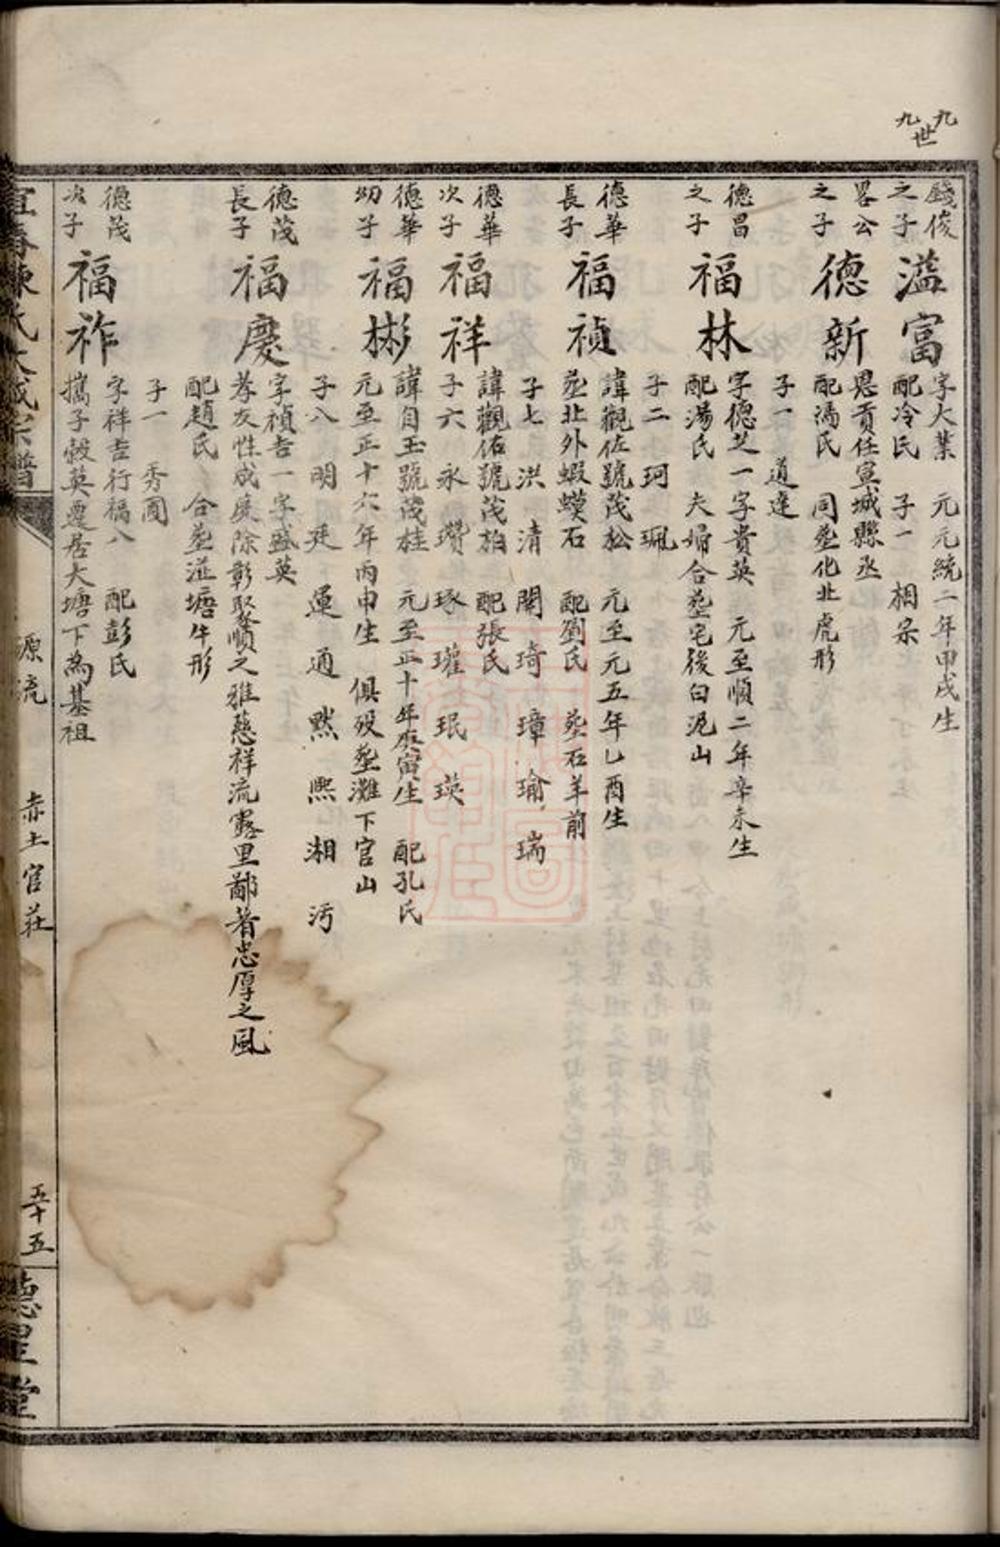 九世
九
錢俊之子
溢富
字大業 元元統二年甲戌生
配冷氏 子一 相呆
畧公之子
德新
恩貢任宣城縣丞
配馮氏 同塟化北虎形
子一 道達
德昌之子
福林
字德芝一字貴英 元至順二年辛未生
配湯氏 夫婦合塟宅後白泥山
子二 珂 珮
德華長子
福禎
諱觀佐號茂松 元至元五年乙酉生
塟北外蝦蟆石 配劉氏 塟石羊前
子七 洪 清 閏 琦 璋 瑜 瑞
德華次子
福祥
諱觀佑號茂柏 配張氏
子六 永 瓚 琢 瓘 珉 瑛
德華幼子
福彬
諱自玉號茂桂 元至正十年庚寅生 配孔氏
元至正十六年丙申生 俱歿塟灘下官山
子八 明 廷 運 通 熙 湘 沔
德茂長子
福慶
字禎吉一字盛英
孝友性成度除彰聚順之雅慈祥流靄里鄙着忠厚之風
配趙氏 合塟溢塘牛形
子一 秀圓
德茂次子
福祚
字祥吉行福八 配彭氏
攜子毅英遷居大塘下為基祖
宜春陳氏大成宗譜
源流 赤土官莊
五十五
德星堂